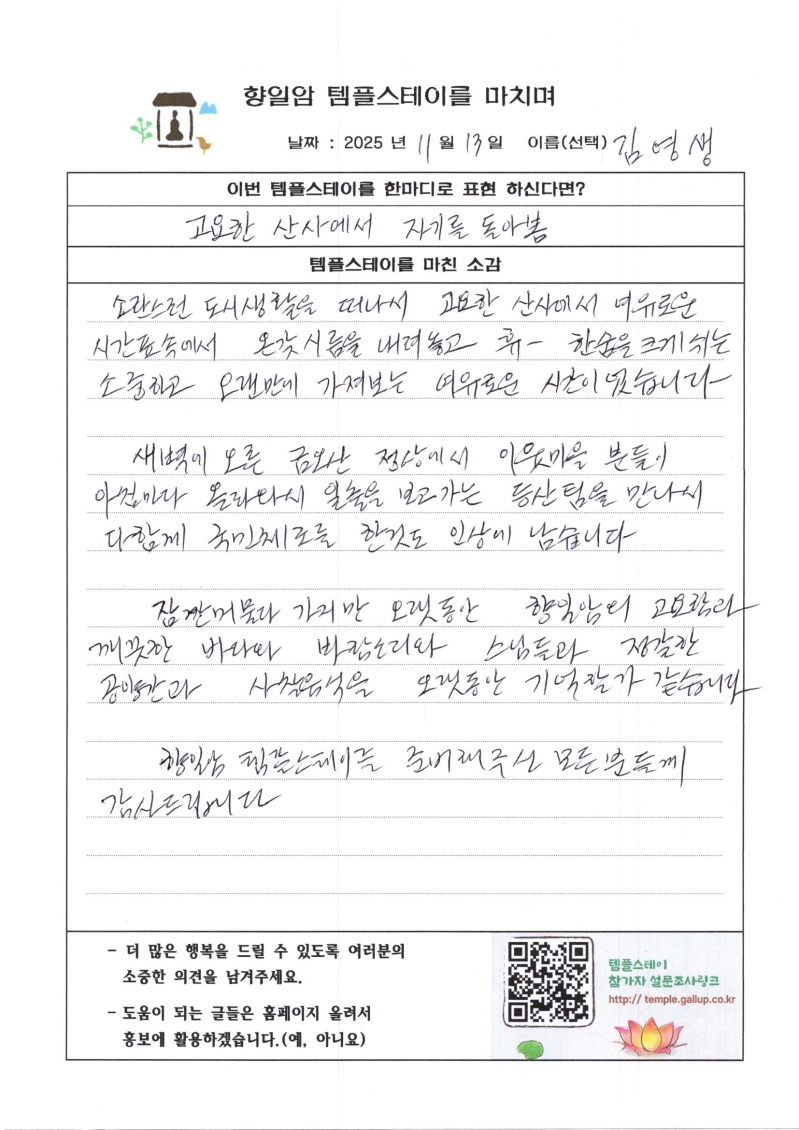 향일암 템플스테이를 마치며
날짜 : 2025 년 11 월 13 일 이름(선택) 김영생
이번 템플스테이를 한마디로 표현 하신다면?
고요한 산사에서 자기를 돌아봄
템플스테이를 마친 소감
소란스런 도시생활을 떠나서 고요한 산사에서 여유로운
시간표속에서 온갖시름을 내려놓고 휴- 한숨을 크게 쉬는
소중하고 오랜만에 가져보는 여유로운 시간이였습니다
새벽에 오른 금오산 정상에서 이웃마을 분들이
아침마다 올라와서 일출을 보고가는 등산팀을 만나서
다함께 국민체조를 한것도 인상에 남습니다
잠깐머물다 가지만 오랫동안 향일암의 고요함과
깨끗한 바다와 바람소리와 스님들과 정갈한
공양간과 사찰음식을 오랫동안 기억할거 같습니다
향일암 템플스테이를 준비해주신 모든분들께
감사드립니다
- 더 많은 행복을 드릴 수 있도록 여러분의
소중한 의견을 남겨주세요.
- 도움이 되는 글들은 홈페이지 올려서
홍보에 활용하겠습니다.(예, 아니요)
템플스테이
참가자 설문조사링크
http:// temple.gallup.co.kr